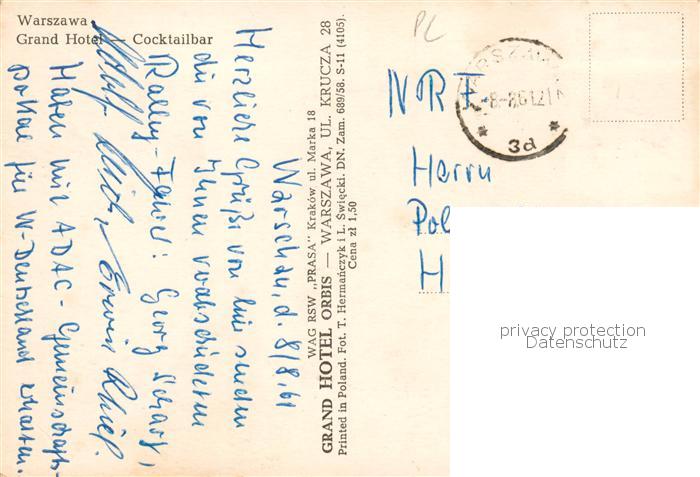 Warszawa
Grand Hotel — Cocktailbar
Warschau, d. 8/8.61
Herzliche Grüße von hie senden
die von Ihnen verabschiedeten
Rallye-Fahrer: Georg Scharf,
Erwin
Haben mit ADAC-Gemeinschafts-
Pokal für W-Deutschland erhalten.
WAG RSW „PRASA" Kraków ul. Marka 18
GRAND HOTEL ORBIS — WARSZAWA, UL. KRUCZA 28
Printed in Poland. Fot. T. Hermańczyk i L. Święcki. DN. Zam. 689/58. S-11 (4105).
Cena zł 1,50
PL
WARSZAWA
-8-8.61.21
3d
NRF.
Herrn
Pol
H
privacy protection
Datenschutz